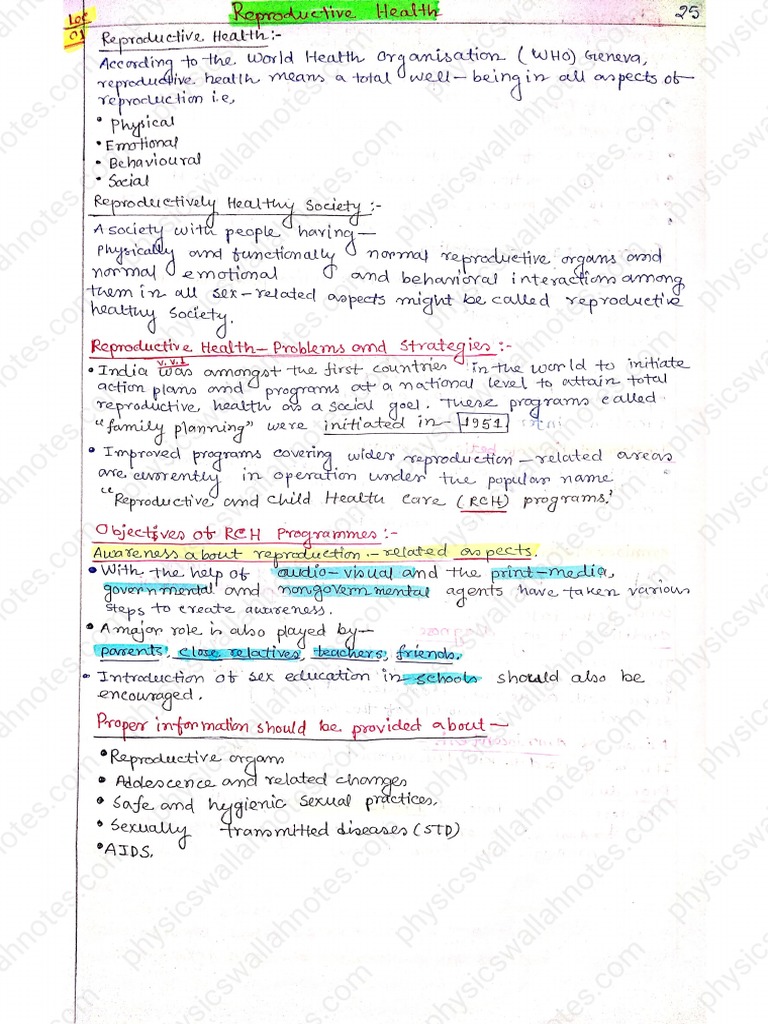 Lec 01
Reproductive Health
25
Reproductive Health:-
According to the World Health Organisation (WHO) Geneva,
reproductive health means a total well-being in all aspects of
reproduction i.e,
• Physical
• Emotional
• Behavioural
• Social
Reproductively Healthy Society :-
A society with people having—
Physically and functionally normal reproductive organs and
normal emotional and behavioral interactions among
them in all sex-related aspects might be called reproductive
healthy society.
Reproductive Health-Problems and Strategies:-
v.v.I
• India was amongst the first countries in the world to initiate
action plans and programs at a national level to attain total
reproductive health as a social goel. These programs called
"family planning" were initiated in- 1951
• Improved programs covering wider reproduction-related areas
are currently in operation under the popular name
"Reproductive and Child Health Care (RCH) programs."
Objectives of RCH Programmes:-
Awareness about reproduction-related aspects.
• With the help of audio-visual and the print-media,
governmental and nongovernmental agents have taken various
steps to create awareness.
• A major role is also played by-
parents, close relatives, teachers, friends.
• Introduction of sex education in schools should also be
encouraged.
Proper information should be provided about-
• Reproductive organs
• Adolescence and related changes
• Safe and hygienic sexual practices.
• Sexually transmitted diseases (STD)
• AIDS.
physicswallahnotes.com